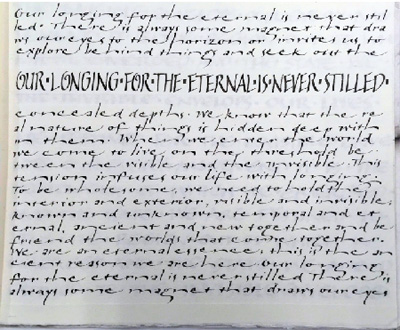 Our longing for the eternal is never stil
led. There is always some magnet that dra
ws our eyes to the horizon or invites us to
explore behind things and seek out the
OUR·LONGING·FOR·THE·ETERNAL·IS·NEVER·STILLED·
concealed depths. We know that the re
al nature of things is hidden deep with
in them. When we enter the world
we come to live on the threshold be
tween the visible and the invisible. This
tension infuses our life with longing.
To be wholesome, we need to hold the
interior and exterior, visible and invisible,
known and unknown, temporal and et
ernal, ancient and new together and be
friend the worlds that come together.
We are an eternal essence: this is the an
cient reason we are here Our longing
for the eternal is never stilled There is
always some magnet that draws our eyes